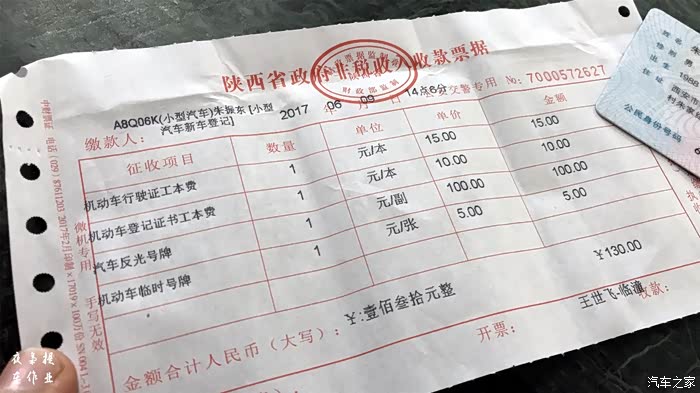 陕西省政府非税收入收款票据
财政部监制
公安交警专用 No: 7000572627
ABQ06K(小型汽车)朱振东 [小型
汽车新车登记]
2017 年 06 月 09 日 14点6分
缴款人：
征收项目 数量 单位 单价 金额
机动车行驶证工本费 1 元/本 15.00 15.00
机动车登记证书工本费 1 元/本 10.00 10.00
汽车反光号牌 1 元/副 100.00 100.00
机动车临时号牌 1 元/张 5.00 5.00
¥130.00
金额合计人民币（大写）： ¥:壹佰叁拾元整
开票： 王世飞-临潼 收款：
微机专用 手写无效
公民身份号码
汽车之家